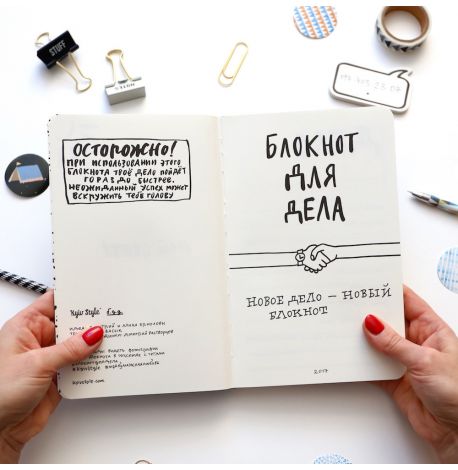 STUFF
market 23.07
ОСТОРОЖНО!
ПРИ ИСПОЛЬЗОВАНИИ ЭТОГО
БЛОКНОТА ТВОЁ ДЕЛО ПОЙДЁТ
ГОРАЗДО БЫСТРЕЕ.
НЕОЖИДАННЫЙ УСПЕХ МОЖЕТ
ВСКРУЖИТЬ ТЕБЕ ГОЛОВУ
Kyiv Style
kyivstyle.com
БЛОКНОТ
ДЛЯ
ДЕЛА
НОВОЕ ДЕЛО — НОВЫЙ
БЛОКНОТ
2017